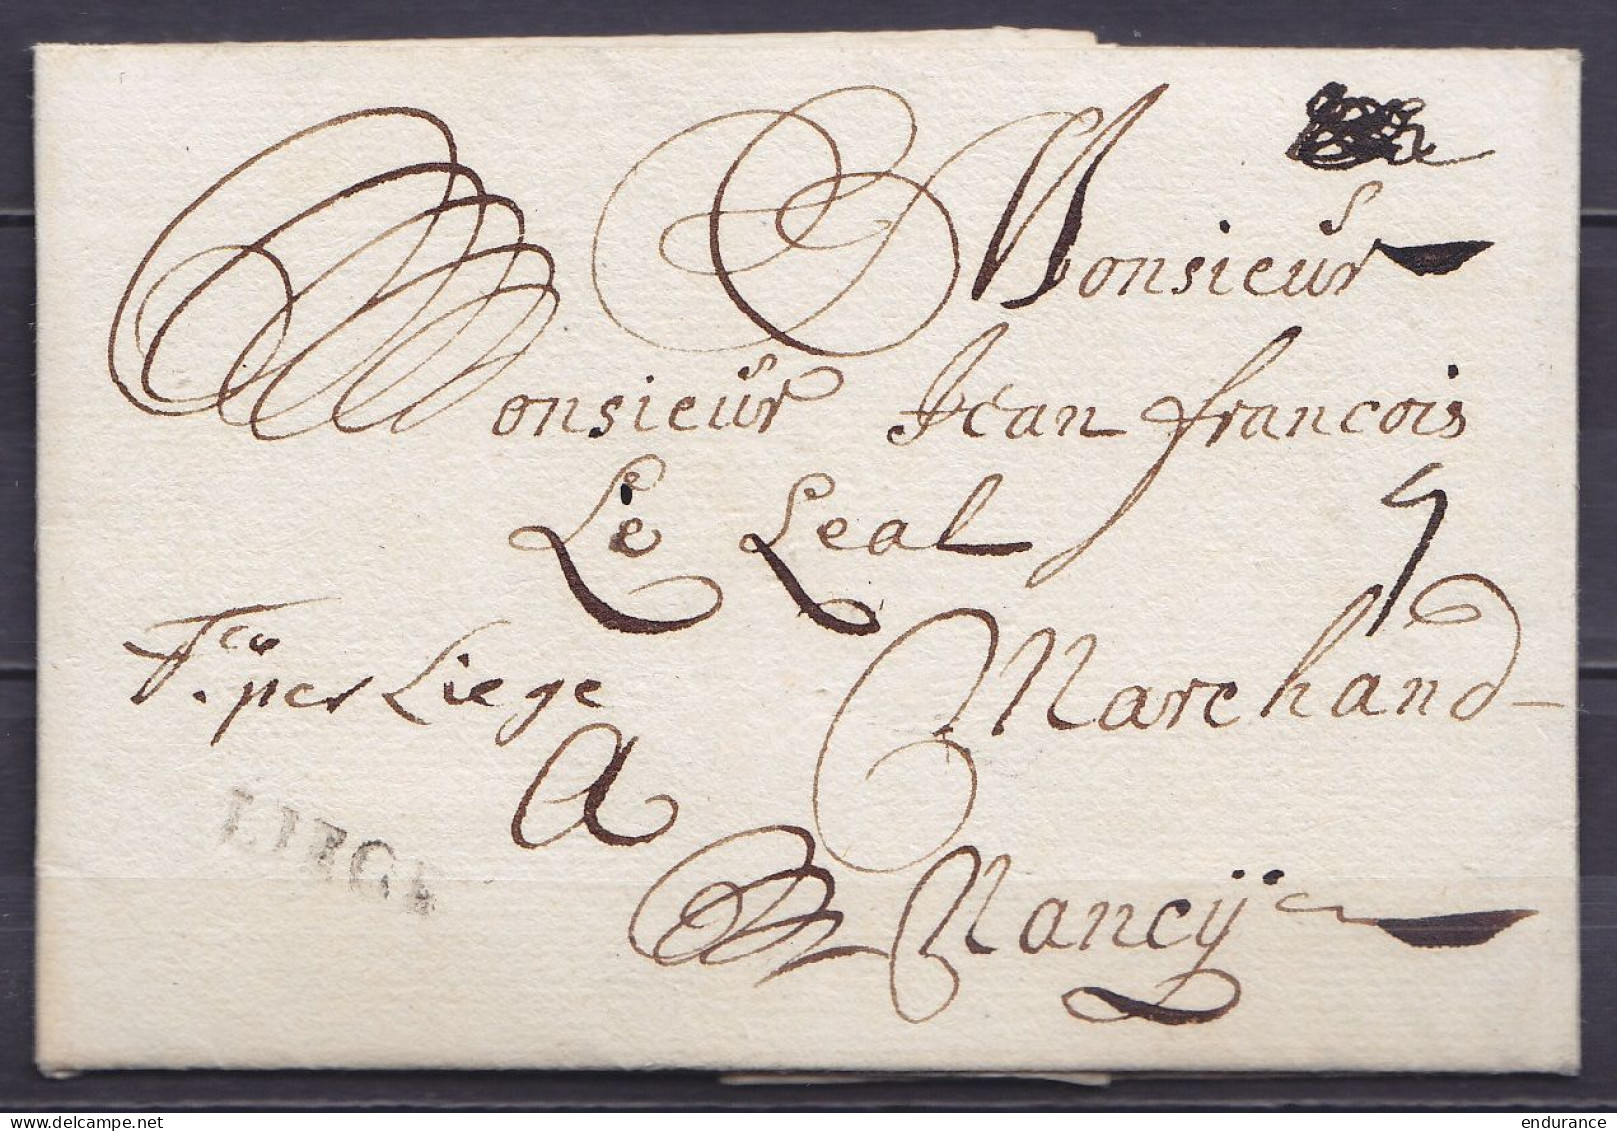 Monsieur
Monsieur Jean francois
Le Leal
9
Marchand
per Liege
A
LIEGE
Nancÿ
endurance